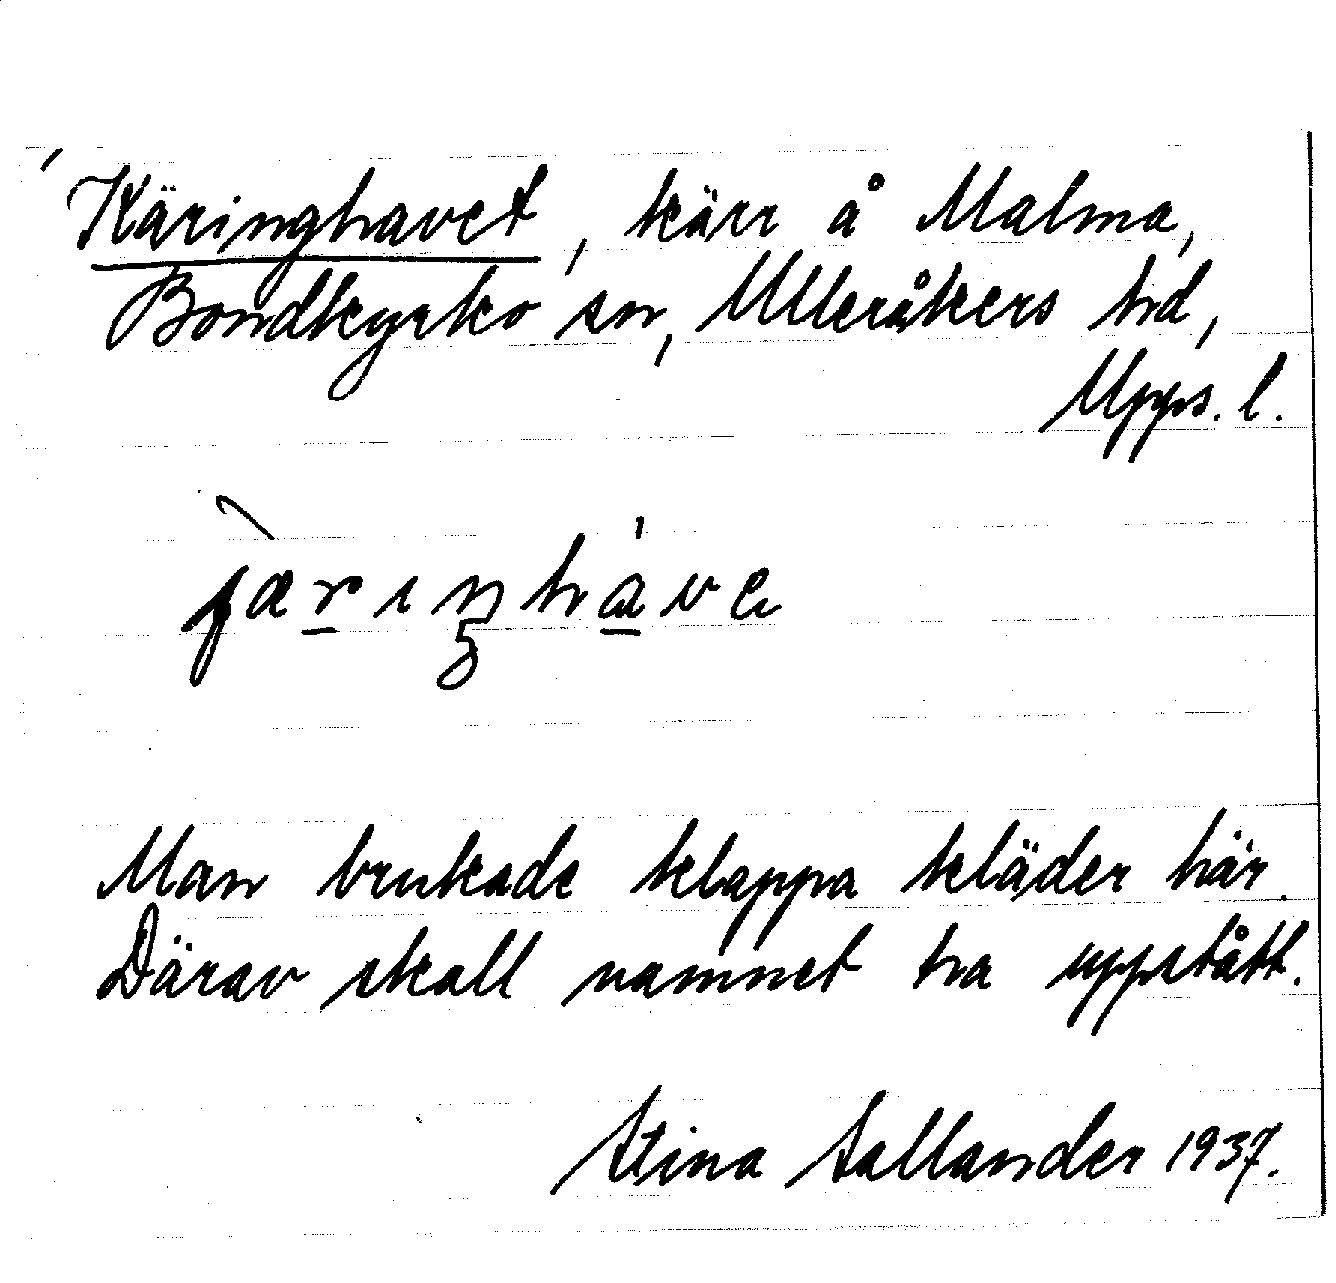 Käringhavet, kärr å Malma,
Bondkyrko sn, Ulleråkers hd,
Upps. l.
Man brukade klappa kläder här.
Därav skall namnet ha uppstått.
Stina Sallander 1937.